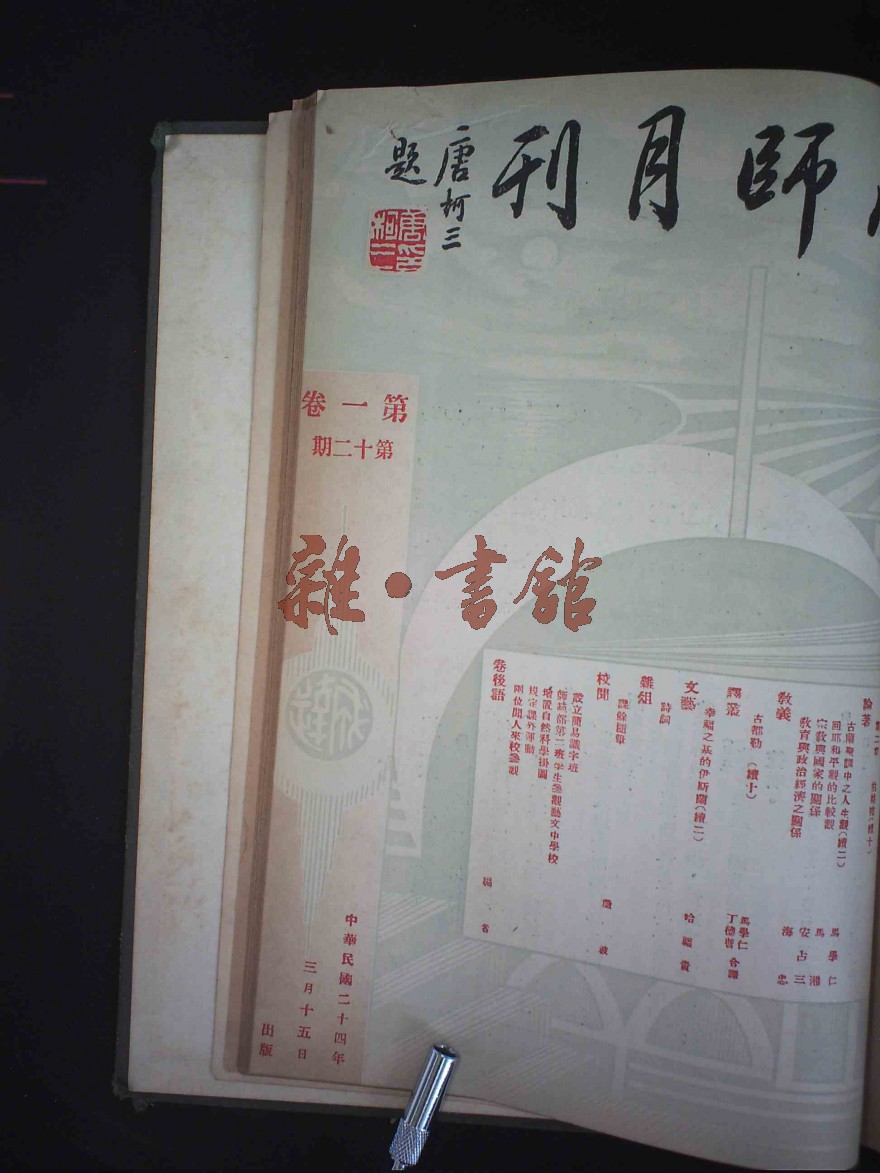 師月刊
唐柯三
題
唐柯三印
第一卷
第十二期
雜·書館
論著
古蘭聖訓中之人生觀(續二) 馬學仁
回耶和平觀的比較觀 馬湘
宗教與國家的關係 安占三
教育與政治經濟之關係 海忠
教義
古都勒(續十) 馬學仁 丁德馨 合譯
譯叢
幸福之基的伊斯蘭(續二) 哈福貴
文藝
詩詞
雜俎
課餘隨筆 微波
校聞
設立簡易識字班
師範部第二班學生參觀勵文中學校
增置自然科學掛圖
規定課外運動
兩位聞人來校參觀
卷後語 編者
中華民國二十四年
三月十五日
出版